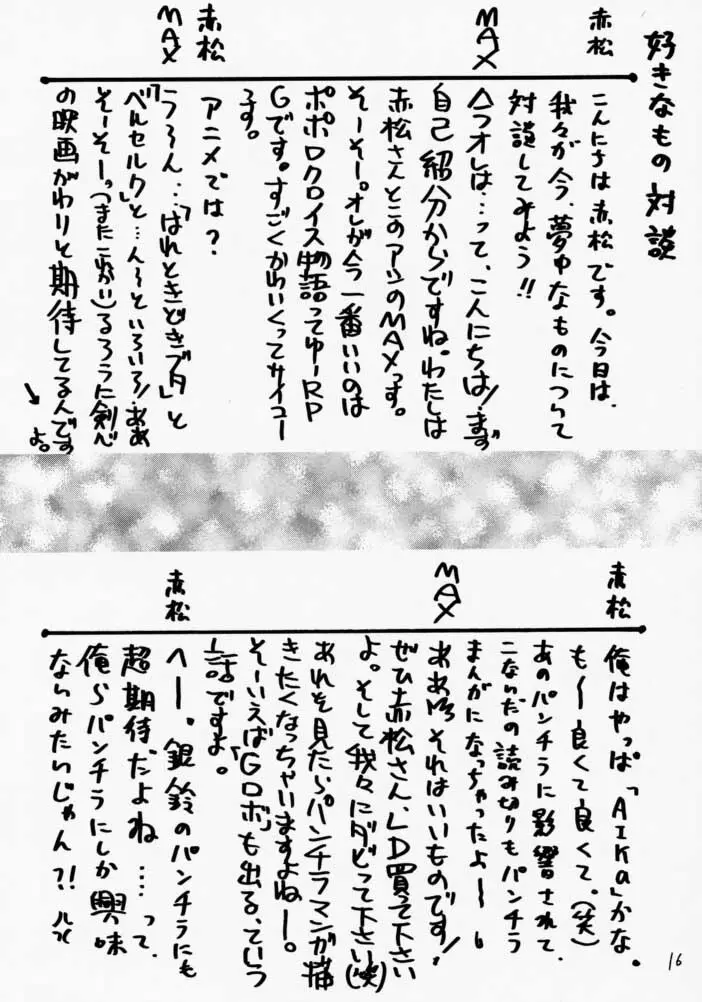 好きなもの対談
赤松
こんにちは赤松です。今日は、
我々が今、夢中なものについて
対談してみよう!!
MAX
今オレは…って、こんにちは!まず
自己紹介からですね。わたしは
赤松さんとこのアシのMAXっす。
そーそー。オレが今一番いいのは
ポポロクロイス物語ってゆーRP
Gです。すごくかわいくってサイコー
です。
赤松
アニメでは?
MAX
う〜ん…「はれときどきブタ」と
「ベルセルク」と…ん〜といろいろ!ああ
そーそーっ(またこれかい)るろうに剣心
の映画がわりと期待してるんです
よ。
赤松
俺はやっぱ「AIKa」かな。
も〜良くて良くて。(笑)
あのパンチラに影響されて、
こないだの読み切りもパンチラ
まんがになっちゃったよ〜
MAX
ああ、それはいいものです!
ぜひ赤松さん、LD買って下さい
よ。そして我々にダビって下さい(笑)
あれを見たらパンチラマンガ描
きたくなっちゃいますよねー。
そーいえば「Gロボ」も出る、ていう
話ですよ。
赤松
へー。銀鈴のパンチラにも
超期待だよね……って、
俺らパンチラにしか興味
ないみたいじゃん?!
16